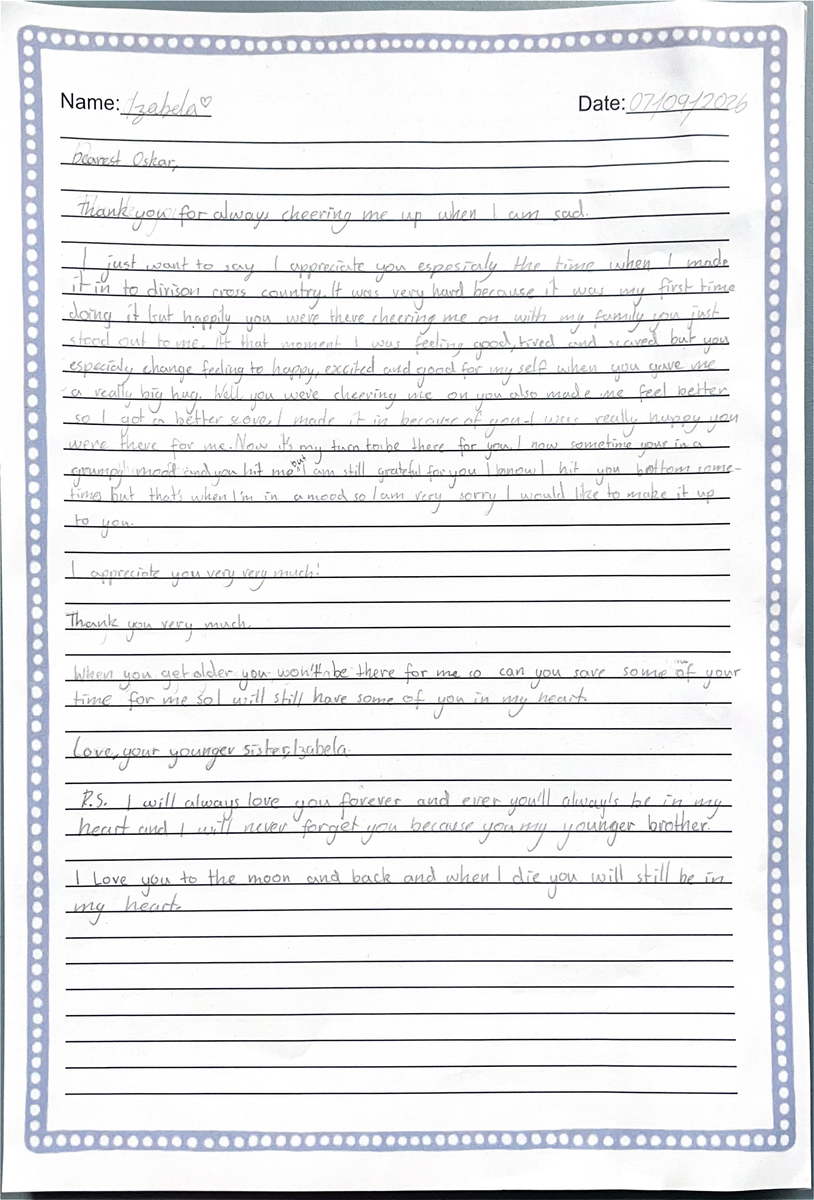 Name: Izabela♡
Date: 07/09/2026
Dearest Oskar,
Thank you for always cheering me up when I am sad.
I just want to say I appreciate you espesialy the time when I made
it in to divison cross country. It was very hard because it was my first time
doing it but happily you were there cheering me on with my family you just
stood out to me. At that moment I was feeling good, tired and scared but you
especialy change feeling to happy, excited and good for my self when you gave me
a really big hug. Well you were cheering me on you also made me feel better
so I got a better score, I made it in because of you. I was really happy you
were there for me. Now it's my turn to be there for you. I now sometime your in a
grumpy mood and you hit me but I am still grateful for you I know I hit you bottom some-
times but that's when I'm in a mood so I am very sorry I would like to make it up
to you.
I appreciate you very very much!
Thank you very much.
When you get older you won't be there for me so can you save some of your
time for me so I will still have some of you in my heart.
Love, your younger sister, Izabela.
P.S. I will always love you forever and ever you'll always be in my
heart and I will never forget you because you my younger brother.
I Love you to the moon and back and when I die you will still be in
my heart.